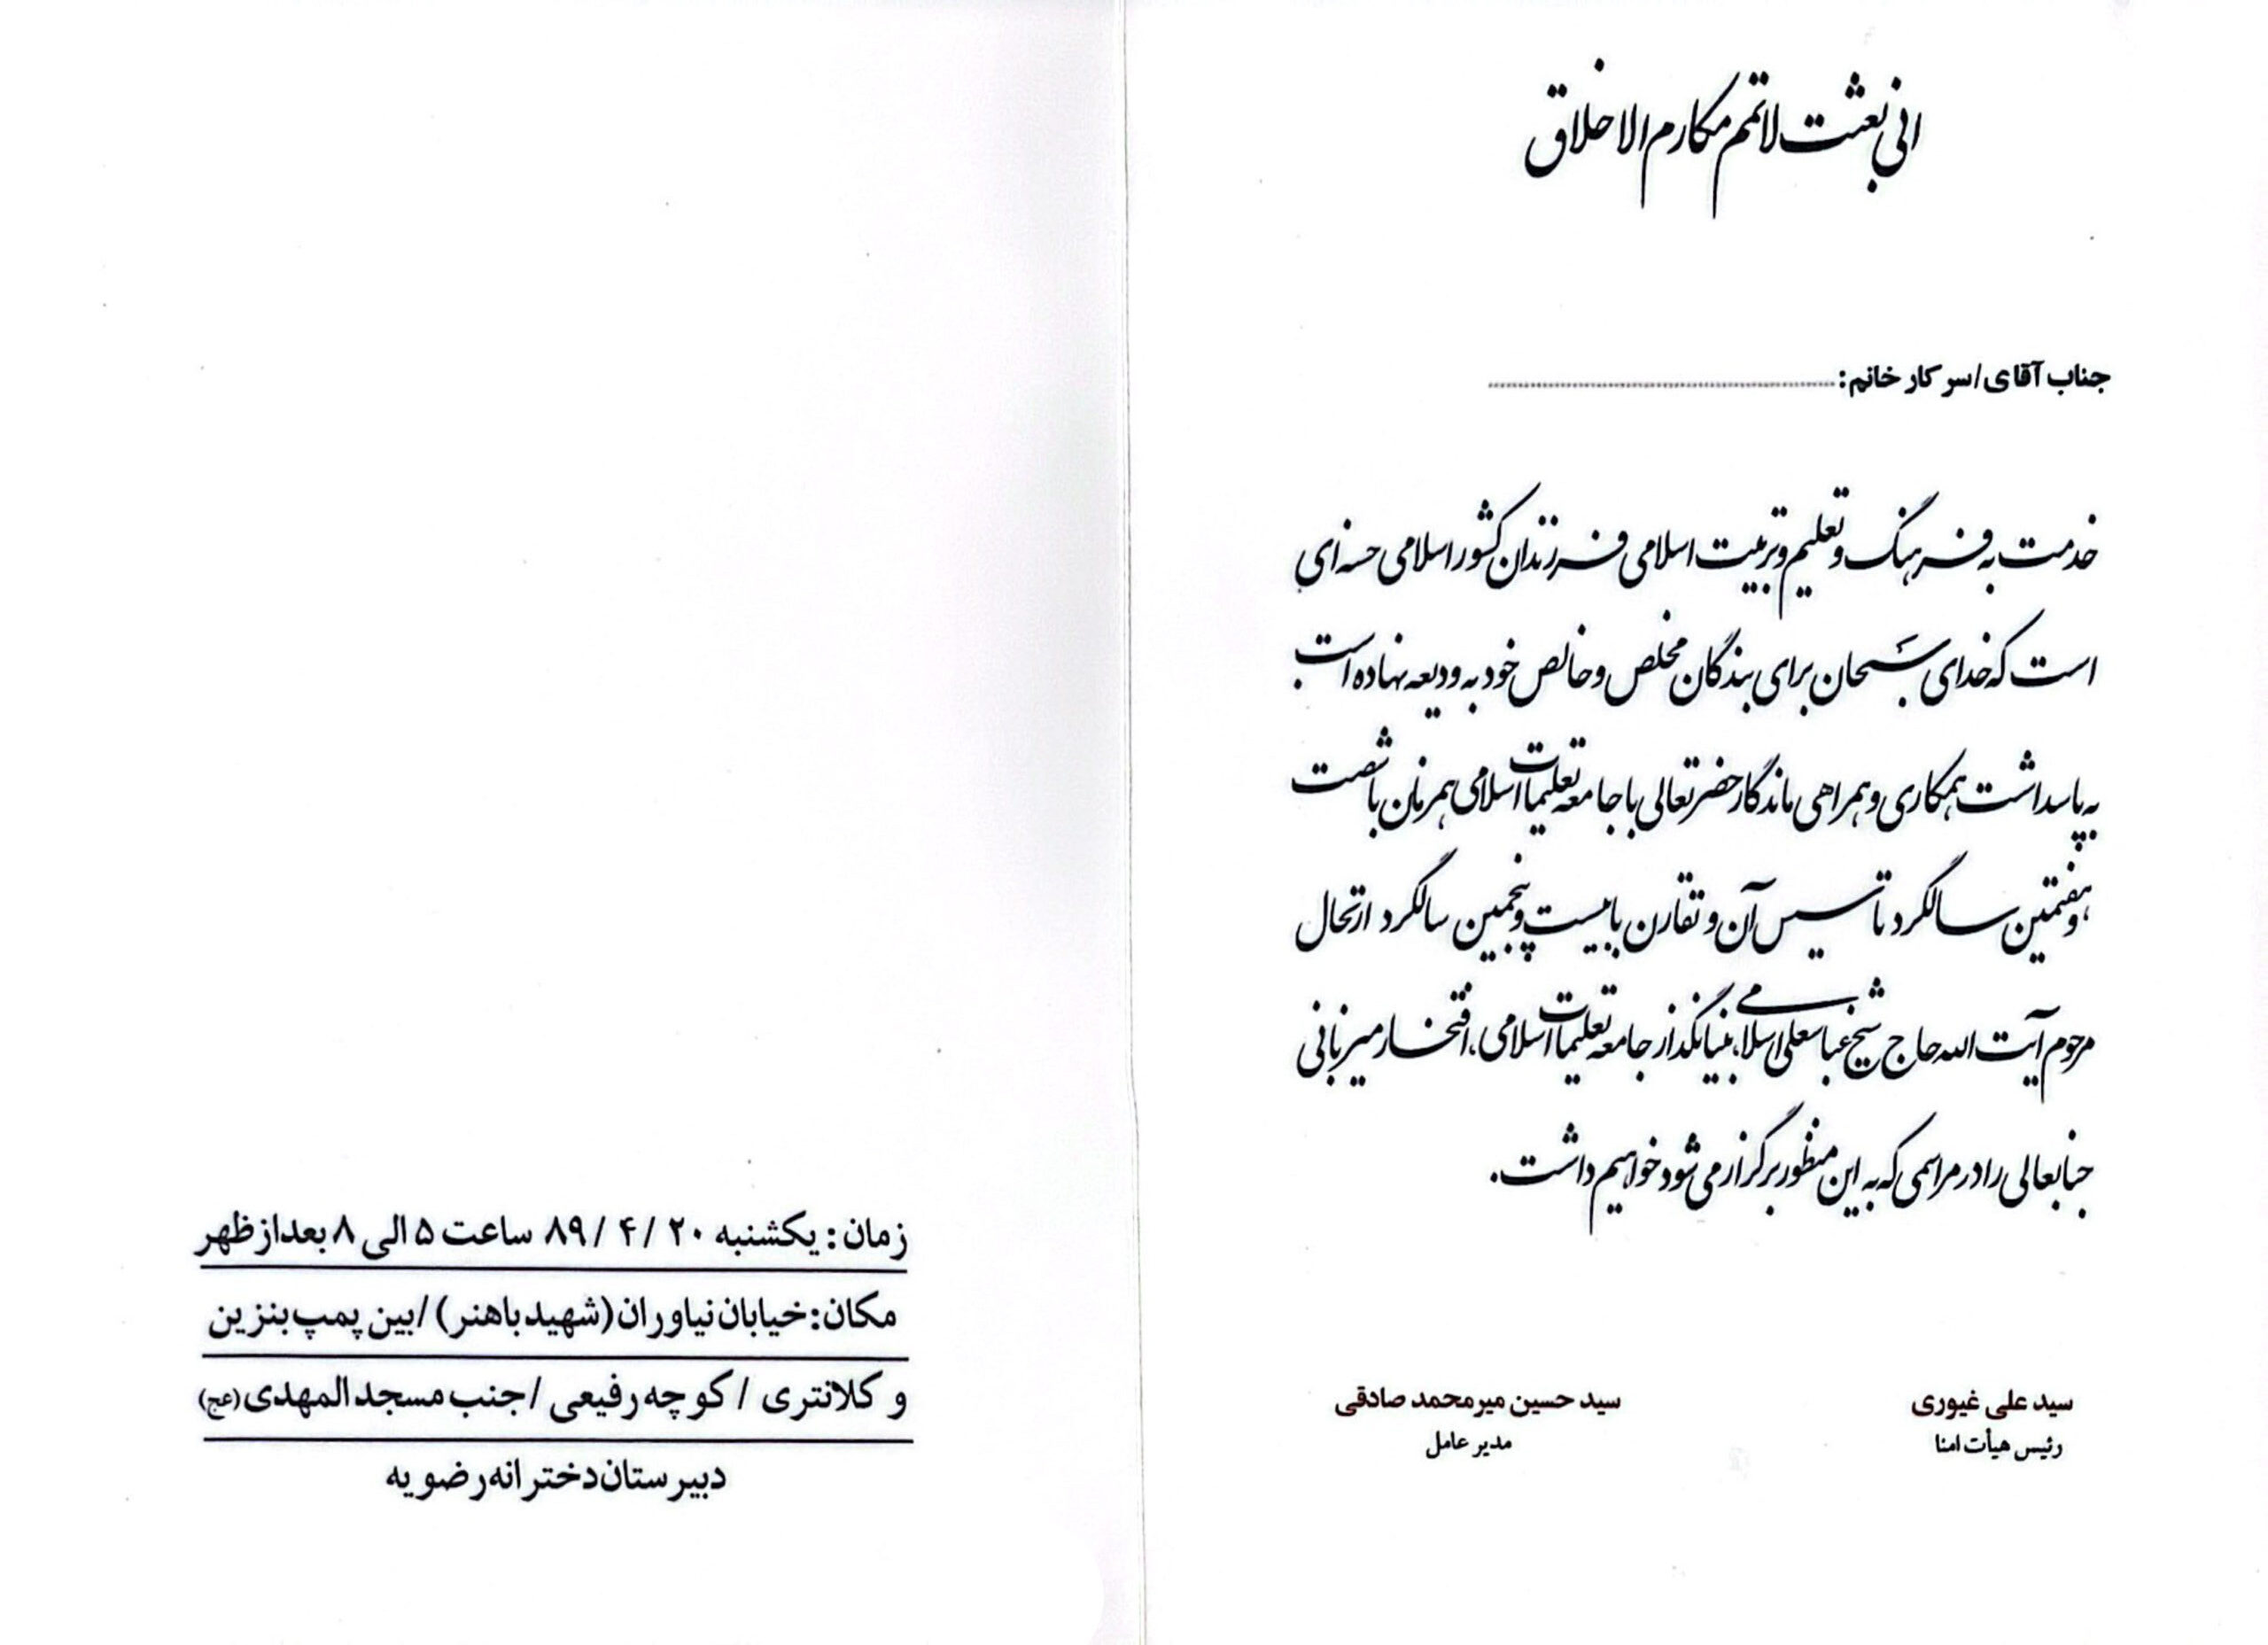 انی بعثت لاتمم مکارم الاخلاق
جناب آقای/سرکار خانم:
خدمت به فرهنگ و تعلیم و تربیت اسلامی فرزندان کشور اسلامی حسنه ای
است که خدای سبحان برای بندگان مخلص و خالص خود به ودیعه نهاده است
به پاسداشت همکاری و همراهی ماندگار حضرتعالی با جامعه تعلیمات اسلامی همزمان با شصت
و هفتمین سالگرد تاسیس آن و تقارن با بیست و پنجمین سالگرد ارتحال
مرحوم آیت الله حاج شیخ عباسعلی اسلامی بنیانگذار جامعه تعلیمات اسلامی، افتخار میزبانی
جنابعالی را در مراسمی که به این منظور برگزار می شود خواهیم داشت.
سید علی غیوری
رئیس هیأت امنا
سید حسین میرمحمد صادقی
مدیر عامل
زمان: یکشنبه ۲۰ / ۴ / ۸۹ ساعت ۵ الی ۸ بعدازظهر
مکان: خیابان نیاوران (شهید باهنر) / بین پمپ بنزین
و کلانتری / کوچه رفیعی / جنب مسجد المهدی (عج)
دبیرستان دخترانه رضویه